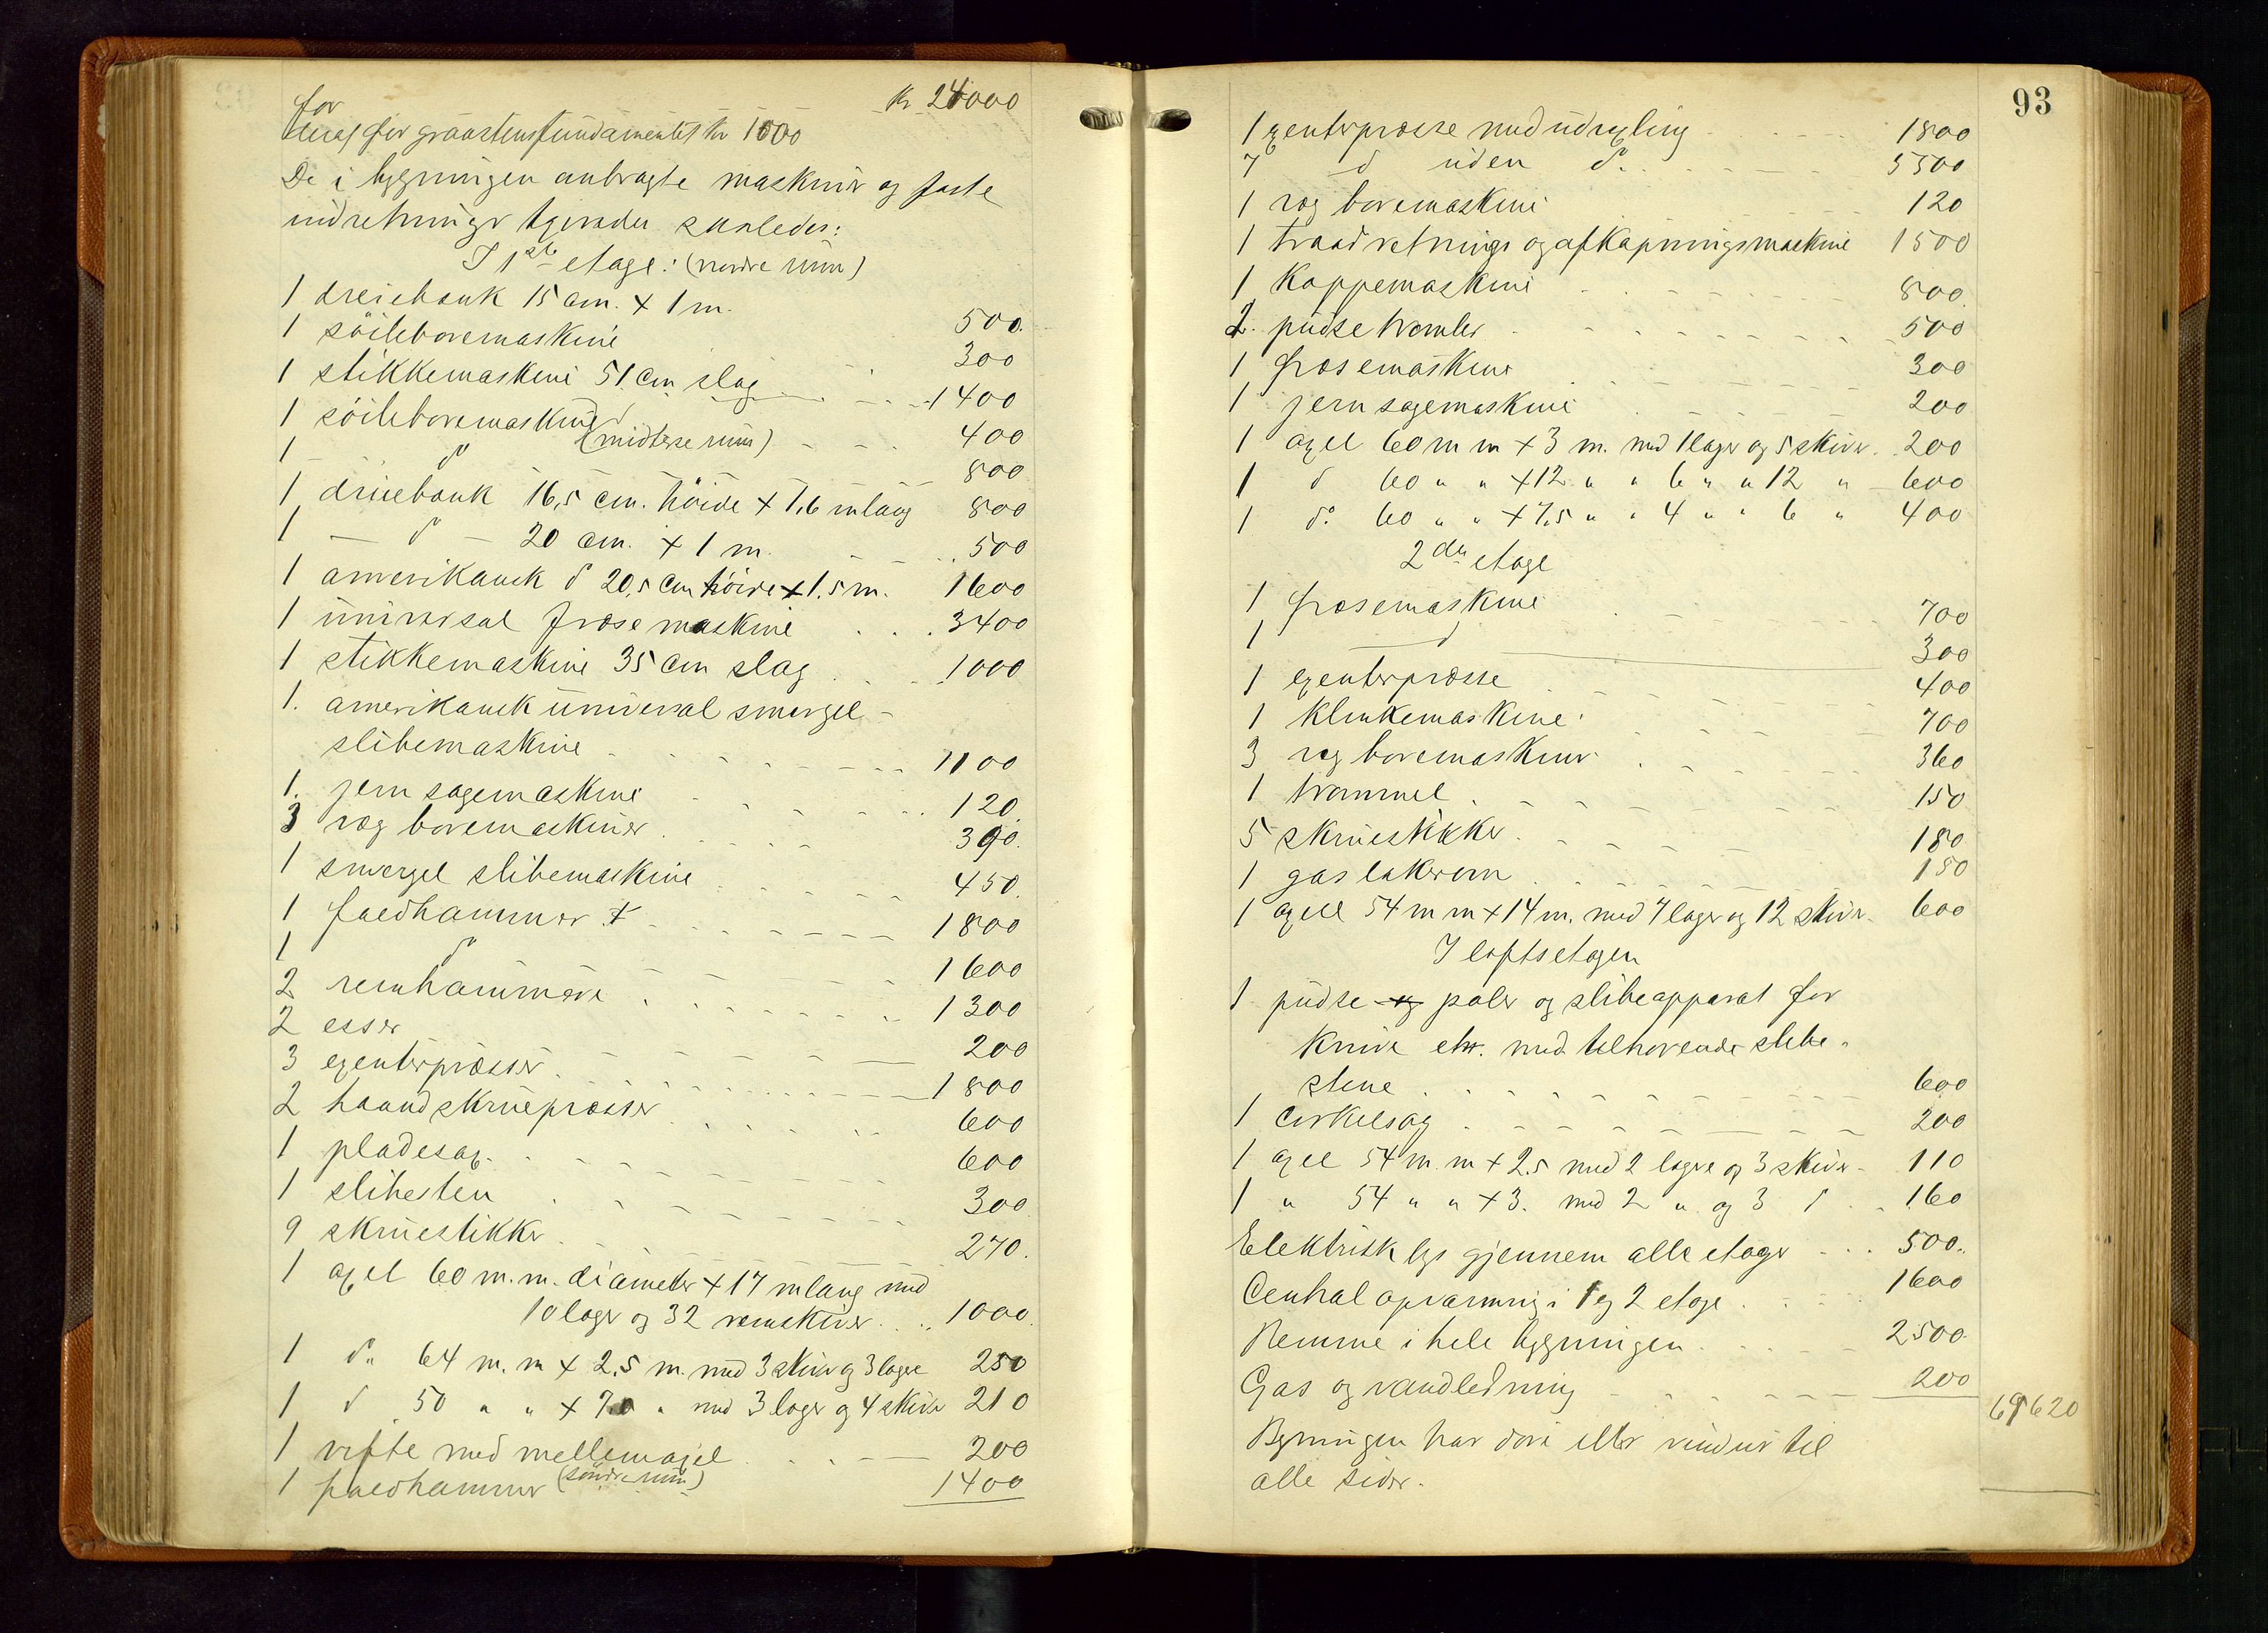 for Kr 24000
deraf for graastensfundamentet kr 1000
De i bygningen anbragte maskiner og faste
indretninger tgerader saaledes:
I 1ste etage: (nordre rum)
1 dreiebank 15 cm. + 1 m. 500.
1 söileboremaskine 300
1 stikkemaskine 51 cm slag 1400
1 söileboremaskine 400
1 do (midterse rum) 800
1 dreiebank 16,5 cm. höide + 1,6 m lang 800
1 — do — 20 cm. + 1 m. 500
1 amerikansk do 20,5 cm höide + 1.5 m. 1600
1 universal fræsemaskine 3400
1 stikkemaskine 35 cm slag 1000
1. amerikansk universal smergel-
slibemaskine 1100
1. jernsagemaskine 120.
3 væg boremaskiner 390.
1 smergel slibemaskine 450.
1 faldhammer + 1800
1 do 1600
2 remhammere 1300
2 esser 200
3 exenterpresser 1800
2 haandskruepresser 600
1 pladesax 600
1 slibesten 300
9 skruestikker 270.
1 axel 60 m.m. diameter + 17 m lang med
10 lager og 32 remskiver 1000.
1 do. 64 m.m + 2.5 m. med 3 skiver og 3 lagere 250
1 do 50 " " + 7,0 " med 3 lager og 4 skiver 210
1 vifte med mellemaxel 200
1 faldhammer (söndre rum) 1400
93
1 exenterpresse med udvexling 1800
7 do uden do. 5500
1 væg boremaskine 120
1 traadretnings og afkapningsmaskine 1500
1 Kappemaskine 800.
2. pudsetromler 500
1 fræsemaskine 300
1 jernsagemaskine 200
1 axel 60 m m + 3 m. med 1 lager og 5 skiver 200
1 do 60 " " + 12 " " 6 " " 12 " 600
1 do. 60 " " + 7,5 " " 4 " " 6 " 400
2den etage
1 fræsemaskine 700
1 do 300
1 exenterpresse 400
1 Klinkemaskine 700
3 væg boremaskiner 360
1 trommel 150
5 skruestikker 180
1 gas lakerovn 150
1 axel 54 m m + 14 m. med 7 lager og 12 skiver 600
I loftsetagen
1 pudse og poler og slibeapparat for
Knive etc. med tilhorende slibe-
stene 600
1 Cirkelsag 200
1 axel 54 m.m + 2.5 med 2 lagere og 3 skiver 110
1 " 54 " " + 3. med 2 " og 3 do 160
Elektrisk lys gjennem alle etager 500.
Central opvarmning i 1 og 2 etage 1600
Remme i hele bygningen 2500.
Gas og vandledning 200
69620
Bygningen har döre eller vinduer til
alle sider.